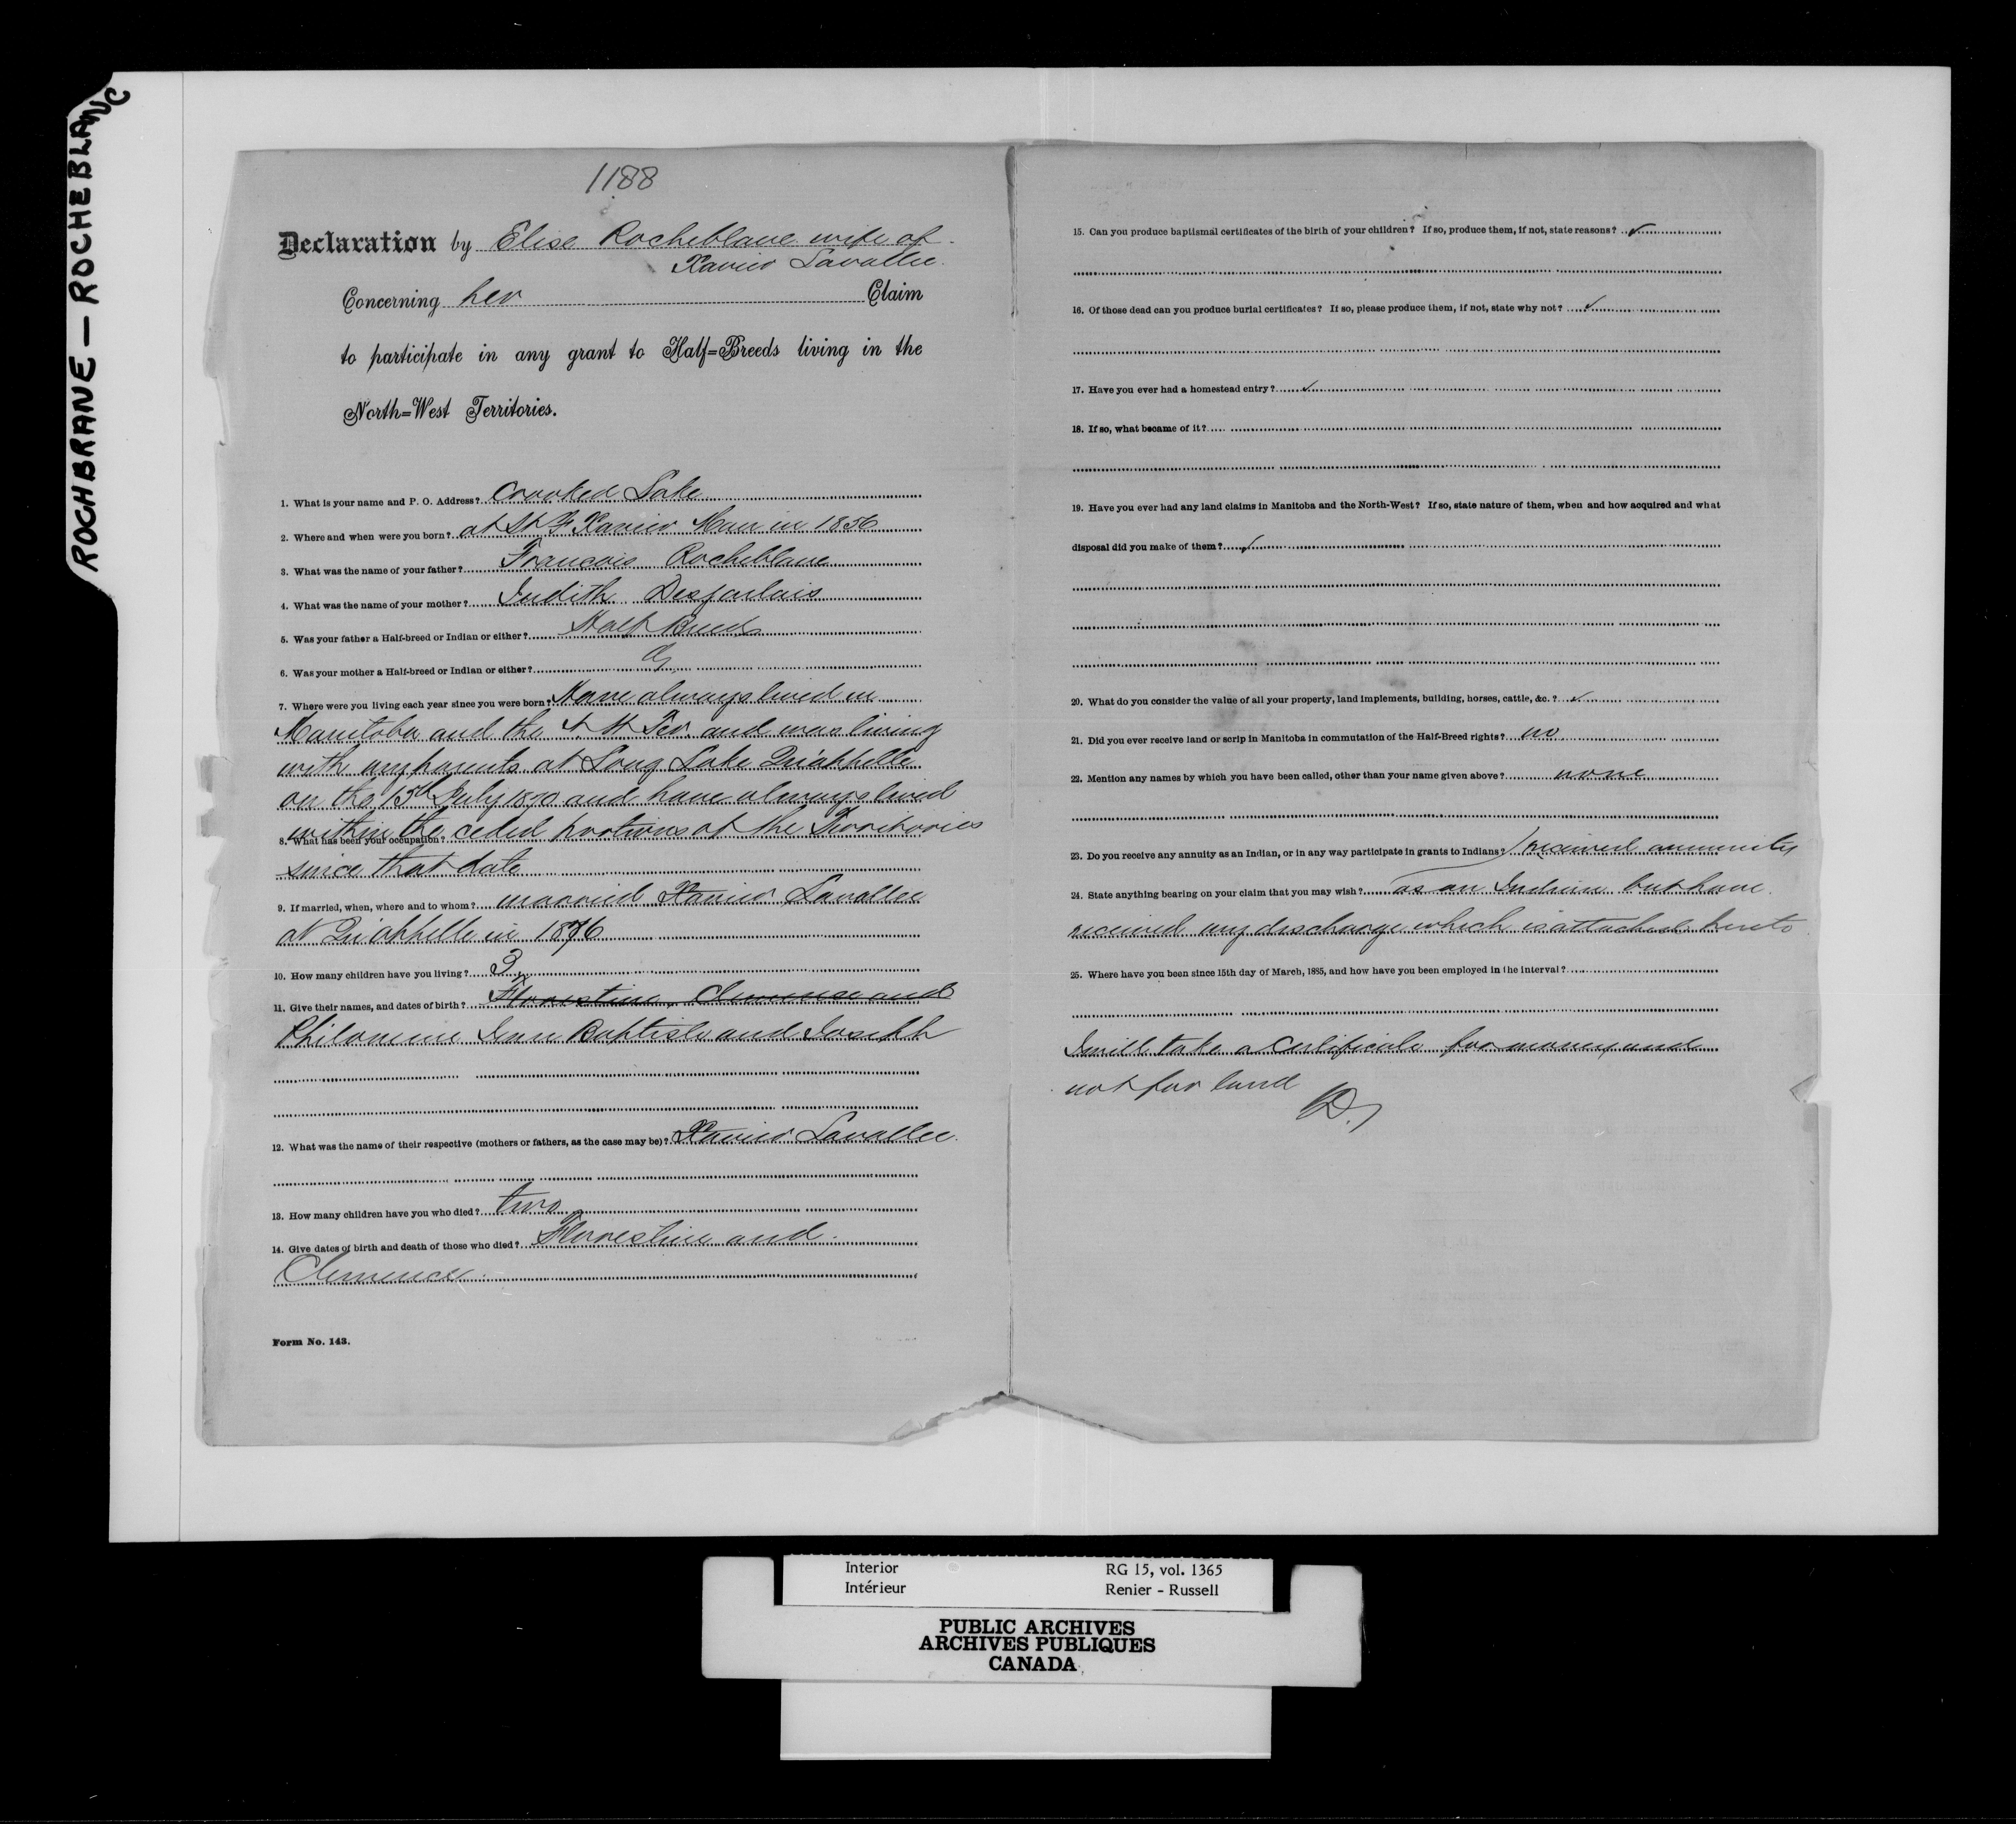 ROCHBRANE — ROCHEBLANC
1188
Declaration by Elise Rocheblave wife of
Xavier Lavallee.
Concerning her Claim
to participate in any grant to Half=Breeds living in the
North=West Territories.
1. What is your name and P. O. Address? Crooked Lake
2. Where and when were you born? at St F. Xavier Man in 1856
3. What was the name of your father? Francois Rocheblave
4. What was the name of your mother? Judith Desjarlais
5. Was your father a Half-breed or Indian or either? Half Breed
6. Was your mother a Half-breed or Indian or either?
7. Where were you living each year since you were born? Have always lived in
Manitoba and the N. W Ter. and was living
with my parents at Long Lake Qu'appelle
on the 15th July 1870 and have always lived
within the ceded portions of the Territories
8. What has been your occupation?
since that date
9. If married, when, where and to whom? married Xavier Lavallee
at Qu'appelle in 1876
10. How many children have you living? 3
11. Give their names, and dates of birth? Florestine, Clemence and
Philomene Jean Baptiste and Joseph
12. What was the name of their respective (mothers or fathers, as the case may be)? Xavier Lavallee.
13. How many children have you who died? two
14. Give dates of birth and death of those who died? Florestine and
Clemence
Form No. 143.
15. Can you produce baptismal certificates of the birth of your children? If so, produce them, if not, state reasons? ✓
16. Of those dead can you produce burial certificates? If so, please produce them, if not, state why not? ✓
17. Have you ever had a homestead entry? ✓
18. If so, what became of it?
19. Have you ever had any land claims in Manitoba and the North-West? If so, state nature of them, when and how acquired and what
disposal did you make of them? ✓
20. What do you consider the value of all your property, land implements, building, horses, cattle, &c.? ✓
21. Did you ever receive land or scrip in Manitoba in commutation of the Half-Breed rights? no
22. Mention any names by which you have been called, other than your name given above? none
23. Do you receive any annuity as an Indian, or in any way participate in grants to Indians? I received annuity
24. State anything bearing on your claim that you may wish? as an Indian but have
received my discharge which is attached hereto
25. Where have you been since 15th day of March, 1885, and how have you been employed in the interval?
I will take a Certificate for money and
not for land
Interior RG 15, vol. 1365
Intérieur Renier - Russell
PUBLIC ARCHIVES
ARCHIVES PUBLIQUES
CANADA